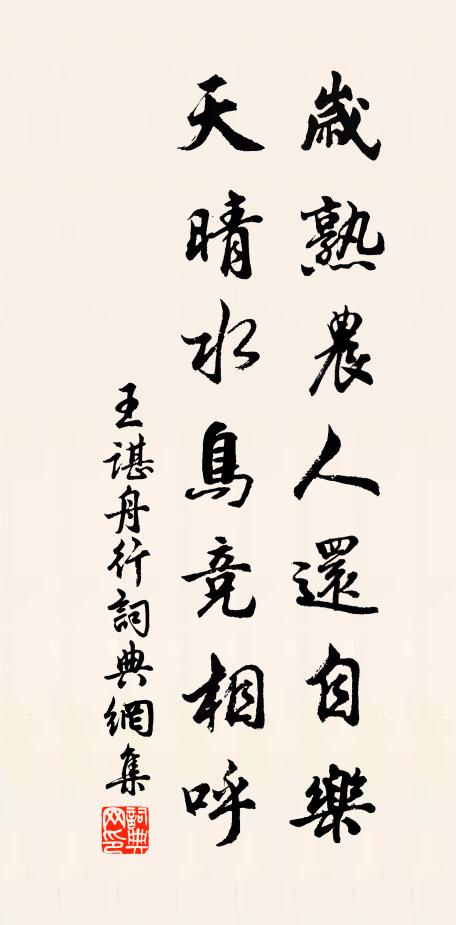 歲熟農人還自樂
天晴水鳥竞相呼
王谌舟行詞典網集
詞典网印